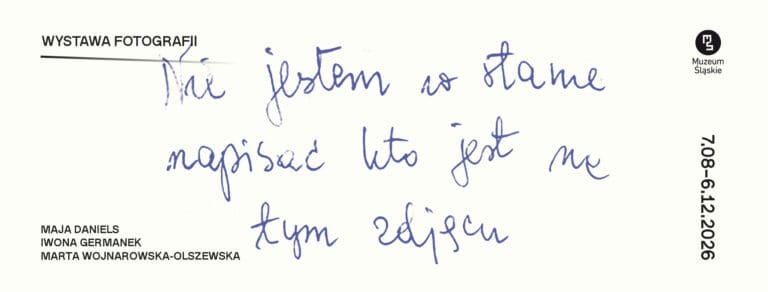 WYSTAWA FOTOGRAFII
Nie jestem w stanie
napisać kto jest na
tym zdjęciu
MAJA DANIELS
IWONA GERMANEK
MARTA WOJNAROWSKA-OLSZEWSKA
Muzeum
Śląskie
7.08–6.12.2026